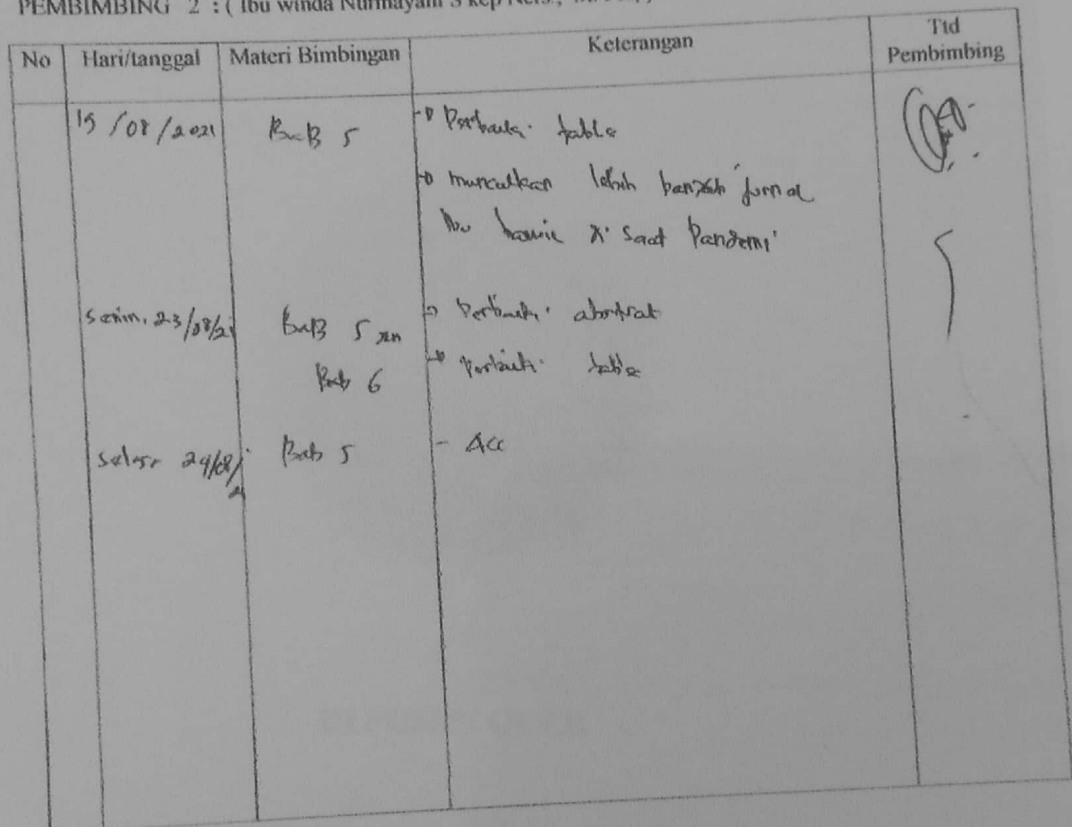 PEMBIMBING 2 : ( Ibu winda Nurmayani S kep Ners.,
No Hari/tanggal Materi Bimbingan Keterangan Ttd Pembimbing
19/08/2021 BaB 5 Perbaiki table
munculkan lebih banyak jurnal
Ibu hamil di saat Pandemi
Senin, 23/08/21 BaB 5 dan Perbaiki abstrak
Bab 6 Perbaiki table
Selasa 24/08/21 Bab 5 - Acc